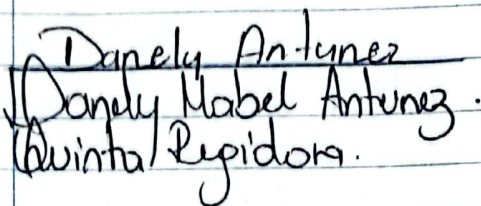 Danely Antunez
Danely Mabel Antunez.
Quinta Regidora.